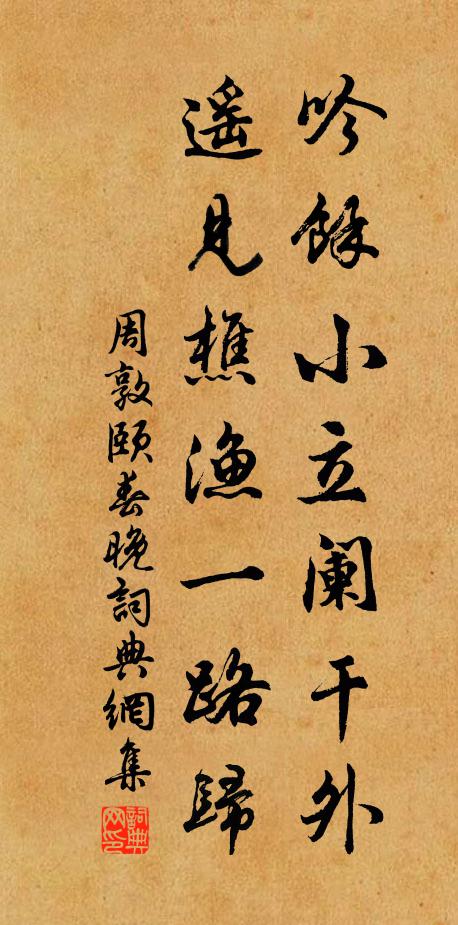 吟餘小立闌干外
遥見樵漁一路歸
周敦頤春晚詞典網集
詞典网印